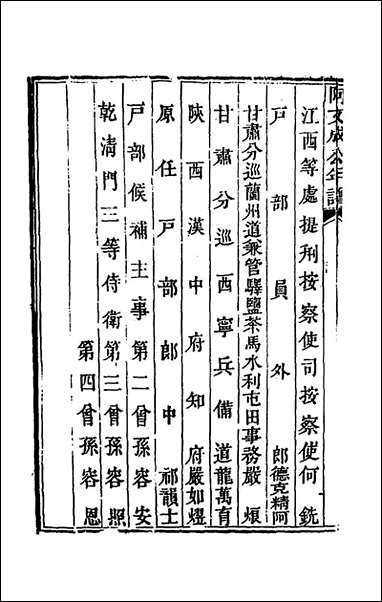 阿文成公年譜
江西等處提刑按察使司按察使何銑
戶部員外郎德克精阿
甘肅分巡蘭州道兼管驛鹽茶馬水利屯田事務嚴烺
甘肅分巡西寧兵備道龍萬育
陝西漢中府知府嚴如熤
原任戶部郎中祁韻士
戶部候補主事第二曾孫容安
乾清門三等侍衛第三曾孫容照
第四曾孫容恩